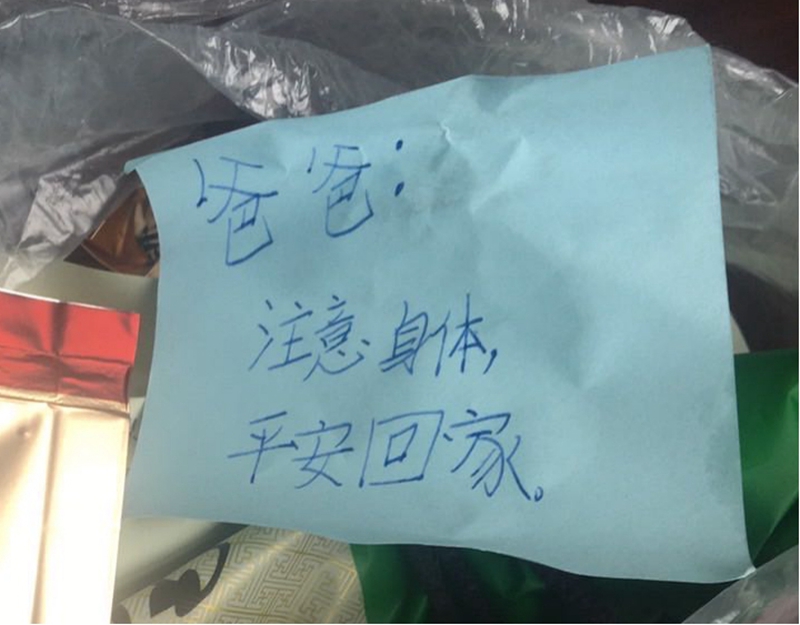 爸爸：
注意身体，
平安回家。